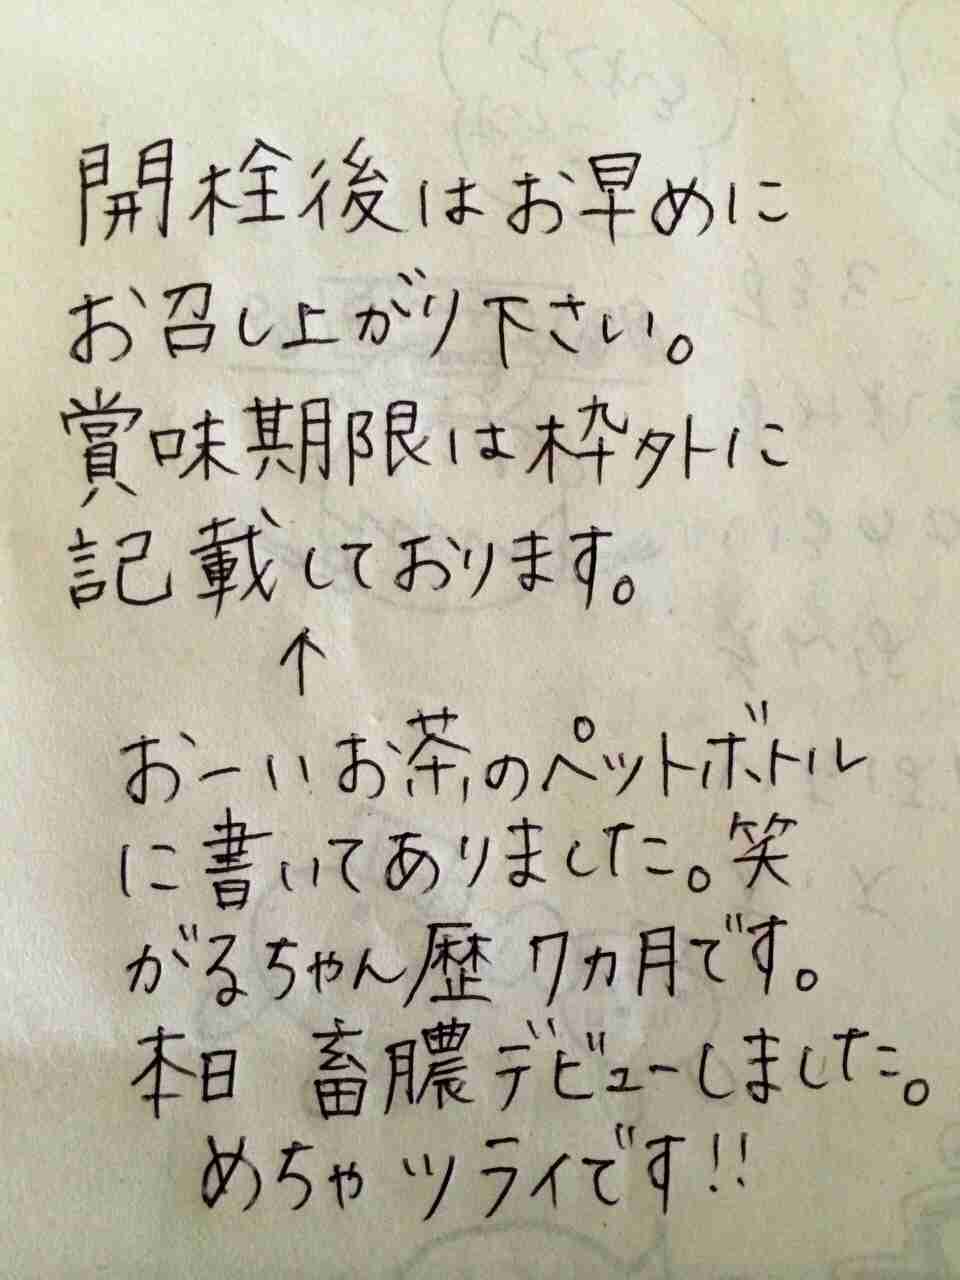 開栓後はお早めに
お召し上がり下さい。
賞味期限は枠外に
記載しております。
↑
おーいお茶のペットボトル
に書いてありました。笑
がるちゃん歴 7ヵ月です。
本日 畜膿デビューしました。
めちゃツライです!!